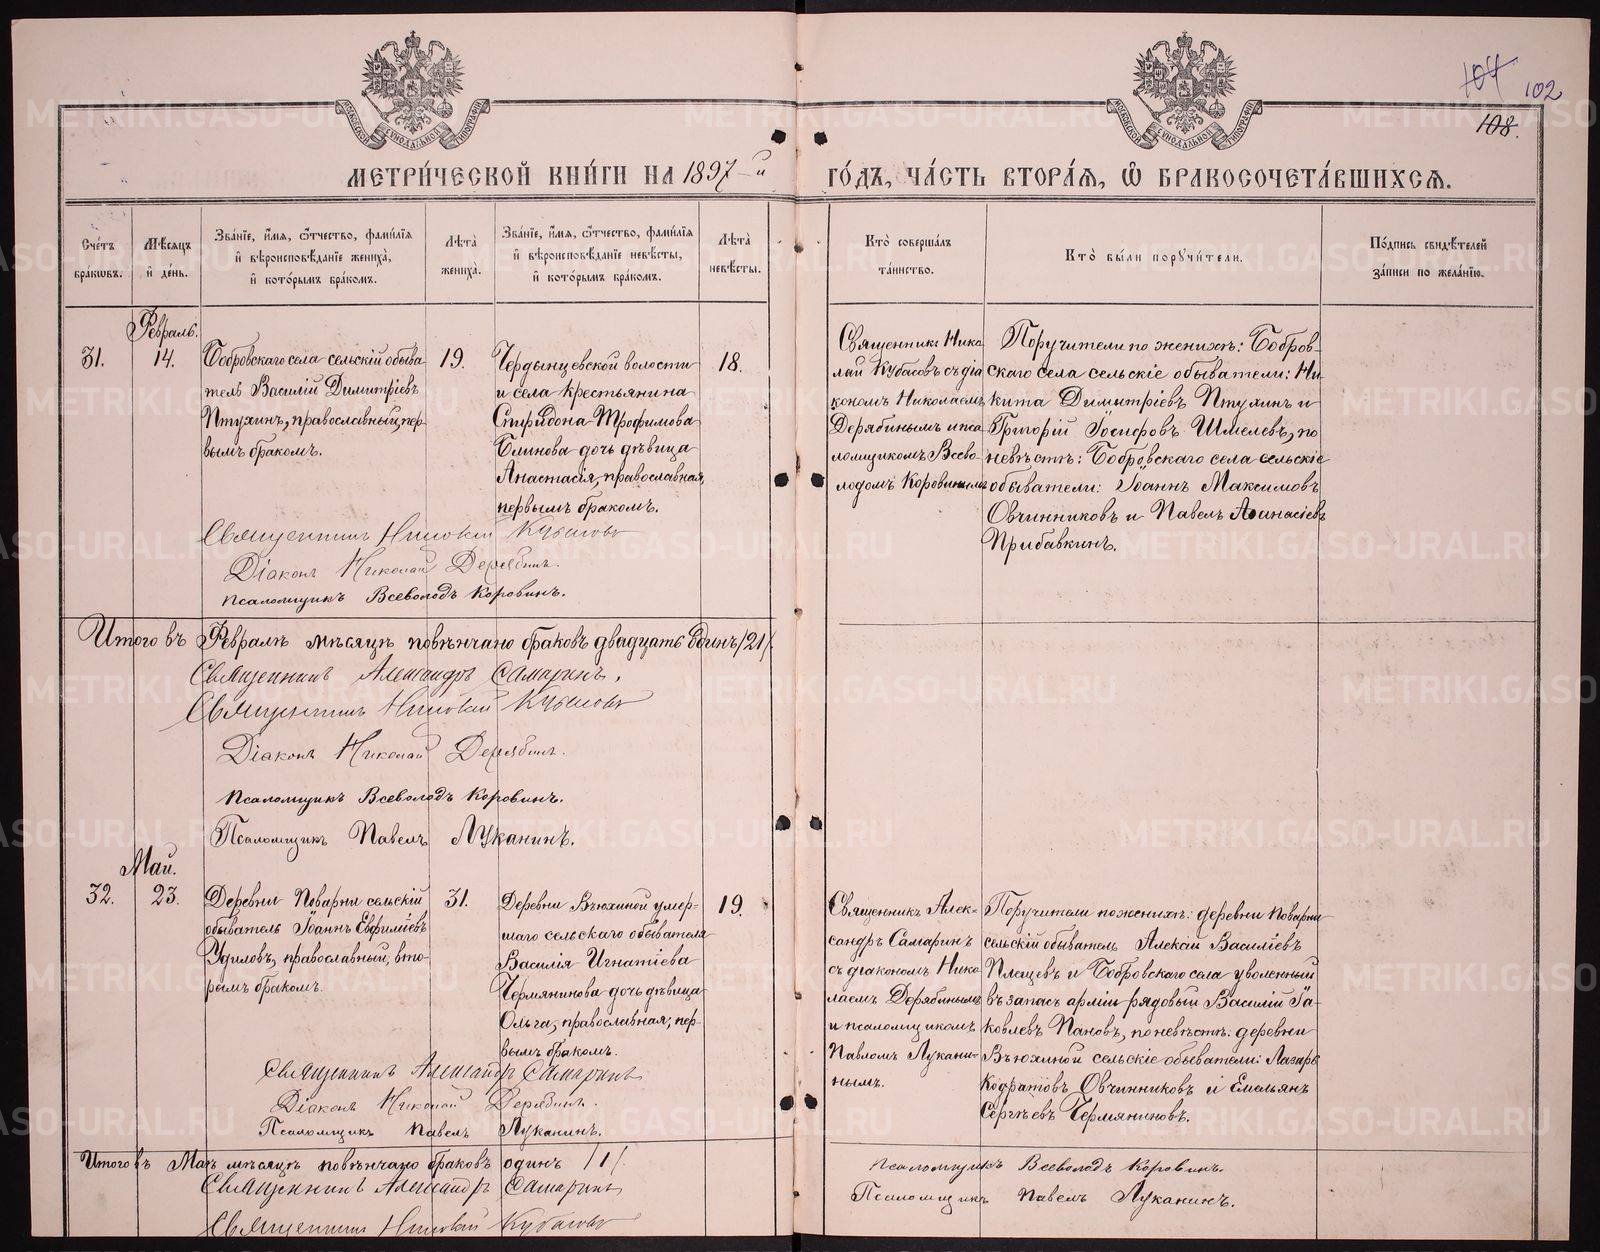 МОСКОВСКОЙ СѴНОДАЛЬНОЙ ТИПОГРАФІИ
МОСКОВСКОЙ СѴНОДАЛЬНОЙ ТИПОГРАФІИ
104 102
108.
МЕТРИ́ЧЕСКОЙ КНИ́ГИ НА 1897-й ГО́ДЪ, ЧА́СТЬ ВТОРА́Я, Ѽ БРАКОСОЧЕТА́ВШИХСЯ.
Сче́тъ
бра́кѡвъ.
Мѣ́сяцъ
и҆ де́нь.
Зва́нїе, и҆́мя, ѻ҆́тчество, фами́лїя
и҆ вѣроисповѣ́данїе жениха̀,
и҆ кото́рымъ бра́комъ.
Лѣ́та
жениха̀.
Зва́нїе, и҆́мя, ѻ҆́тчество, фами́лїя
и҆ вѣроисповѣ́данїе невѣ́сты,
и҆ кото́рымъ бра́комъ.
Лѣ́та
невѣ́сты.
Кто̀ соверша́лъ
та́инство.
Кто̀ бы́ли порꙋчи́тели.
По́дпись свидѣ́телей
за́писи по жела́нїю.
Февраль.
31.
14.
Бобровскаго села сельскій обыва
тель Василій Димитріевъ
Птухинъ, православный, пер
вымъ бракомъ.
19.
Чердынцевской волости
и села крестьянина
Спиридона Трофимова
Блинова дочь дѣвица
Анастасія, православная,
первымъ бракомъ.
18.
Священникъ Нико
лай Кубасовъ съ діа
кономъ Николаемъ
Дерябинымъ и пса
ломщикомъ Всево-
лодомъ Коровинымъ
Поручители по женихѣ: Бобров-
скаго села сельскіе обыватели: Ни
кита Димитріевъ Птухинъ и
Григорій Іосифовъ Шмелевъ, по
невѣстѣ: Бобровскаго села сельскіе
обыватели: Іоаннъ Максимовъ
Овчинниковъ и Павелъ Аѳанасіевъ
Прибавкинъ.
Священникъ Николай Кубасовъ
Діаконъ Николай Дерябинъ.
Псаломщикъ Всеволодъ Коровинъ.
Итого въ Февралѣ мѣсяцѣ повѣнчано браковъ двадцать одинъ /21/.
Священникъ Александръ Самаринъ.
Священникъ Николай Кубасовъ
Діаконъ Николай Дерябинъ.
Псаломщикъ Всеволодъ Коровинъ.
Псаломщикъ Павелъ Луканинъ.
Май.
32.
23.
Деревни Поварни сельскій
обыватель Іоаннъ Евфиміевъ
Удиловъ, православный, вто-
рымъ бракомъ.
31.
Деревни Вьюхиной умер-
шаго сельскаго обывателя
Василія Игнатіева
Чермянинова дочь дѣвица
Ольга, православная, пер-
вымъ бракомъ.
19.
Священникъ Алек-
сандръ Самаринъ
съ діакономъ Нико
лаемъ Дерябинымъ
и псаломщикомъ
Павломъ Лукани-
нымъ.
Поручители по женихѣ: деревни Поварни
сельскій обыватель Алексѣй Василіевъ
Плещевъ и Бобровскаго села уволенный
въ запасъ арміи рядовый Василій Іа-
ковлевъ Пановъ, по невѣстѣ: деревни
Вьюхиной сельскіе обыватели: Лазарь
Кодратовъ Овчинниковъ и Емельянъ
Сергѣевъ Чермяниновъ.
Священникъ Александръ Самаринъ
Діаконъ Николай Дерябинъ.
Псаломщикъ Павелъ Луканинъ.
Итого въ Маѣ мѣсяцѣ повѣнчано браковъ одинъ /1/.
Священникъ Александръ Самаринъ
Священникъ Николай Кубасовъ
Псаломщикъ Всеволодъ Коровинъ.
Псаломщикъ Павелъ Луканинъ.
METRIKI.GASO-URAL.RU